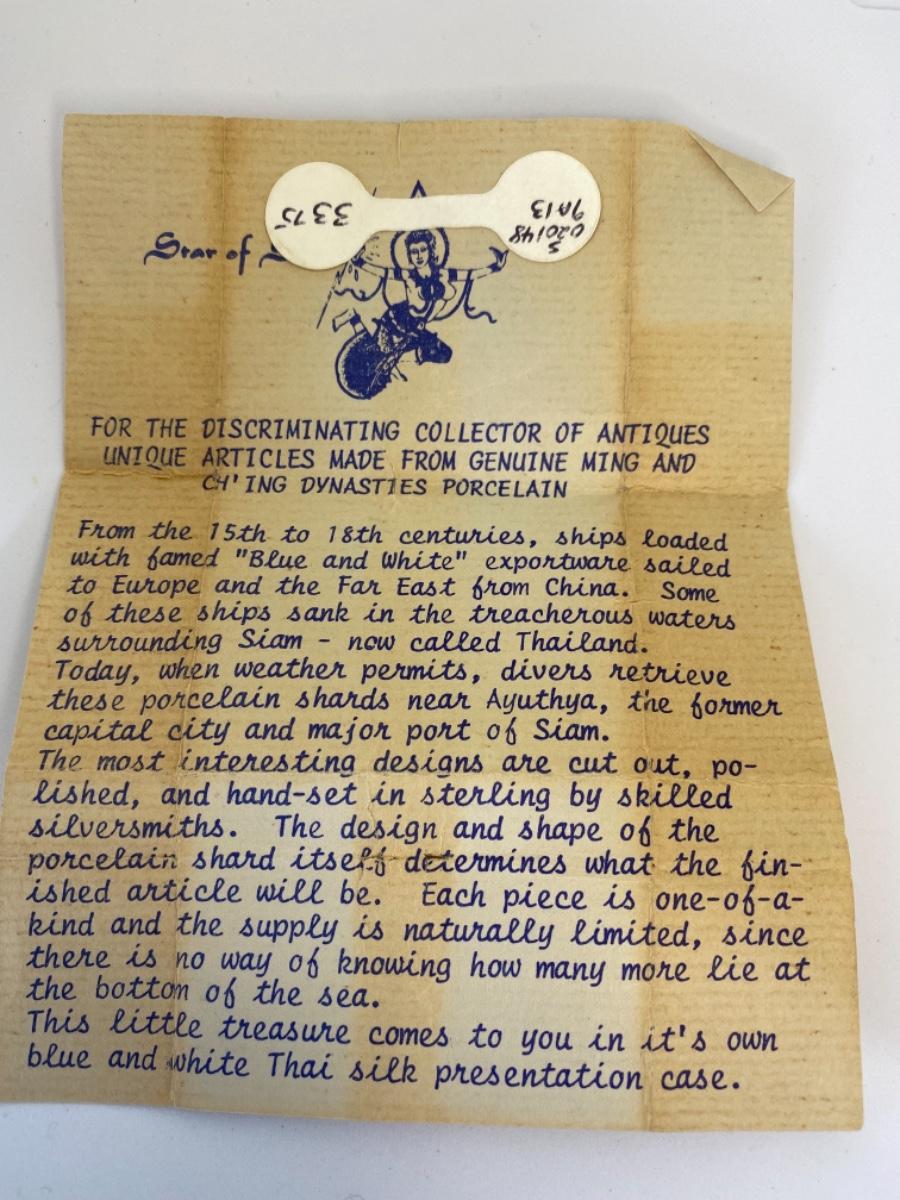 33 75
S
020148
9A13
Star of
FOR THE DISCRIMINATING COLLECTOR OF ANTIQUES
UNIQUE ARTICLES MADE FROM GENUINE MING AND
CH'ING DYNASTIES PORCELAIN
From the 15th to 18th centuries, ships loaded
with famed "Blue and White" exportware sailed
to Europe and the Far East from China. Some
of these ships sank in the treacherous waters
surrounding Siam - now called Thailand.
Today, when weather permits, divers retrieve
these porcelain shards near Ayuthya, the former
capital city and major port of Siam.
The most interesting designs are cut out, po-
lished, and hand-set in sterling by skilled
silversmiths. The design and shape of the
porcelain shard itself determines what the fin-
ished article will be. Each piece is one-of-a-
kind and the supply is naturally limited, since
there is no way of knowing how many more lie at
the bottom of the sea.
This little treasure comes to you in it's own
blue and white Thai silk presentation case.